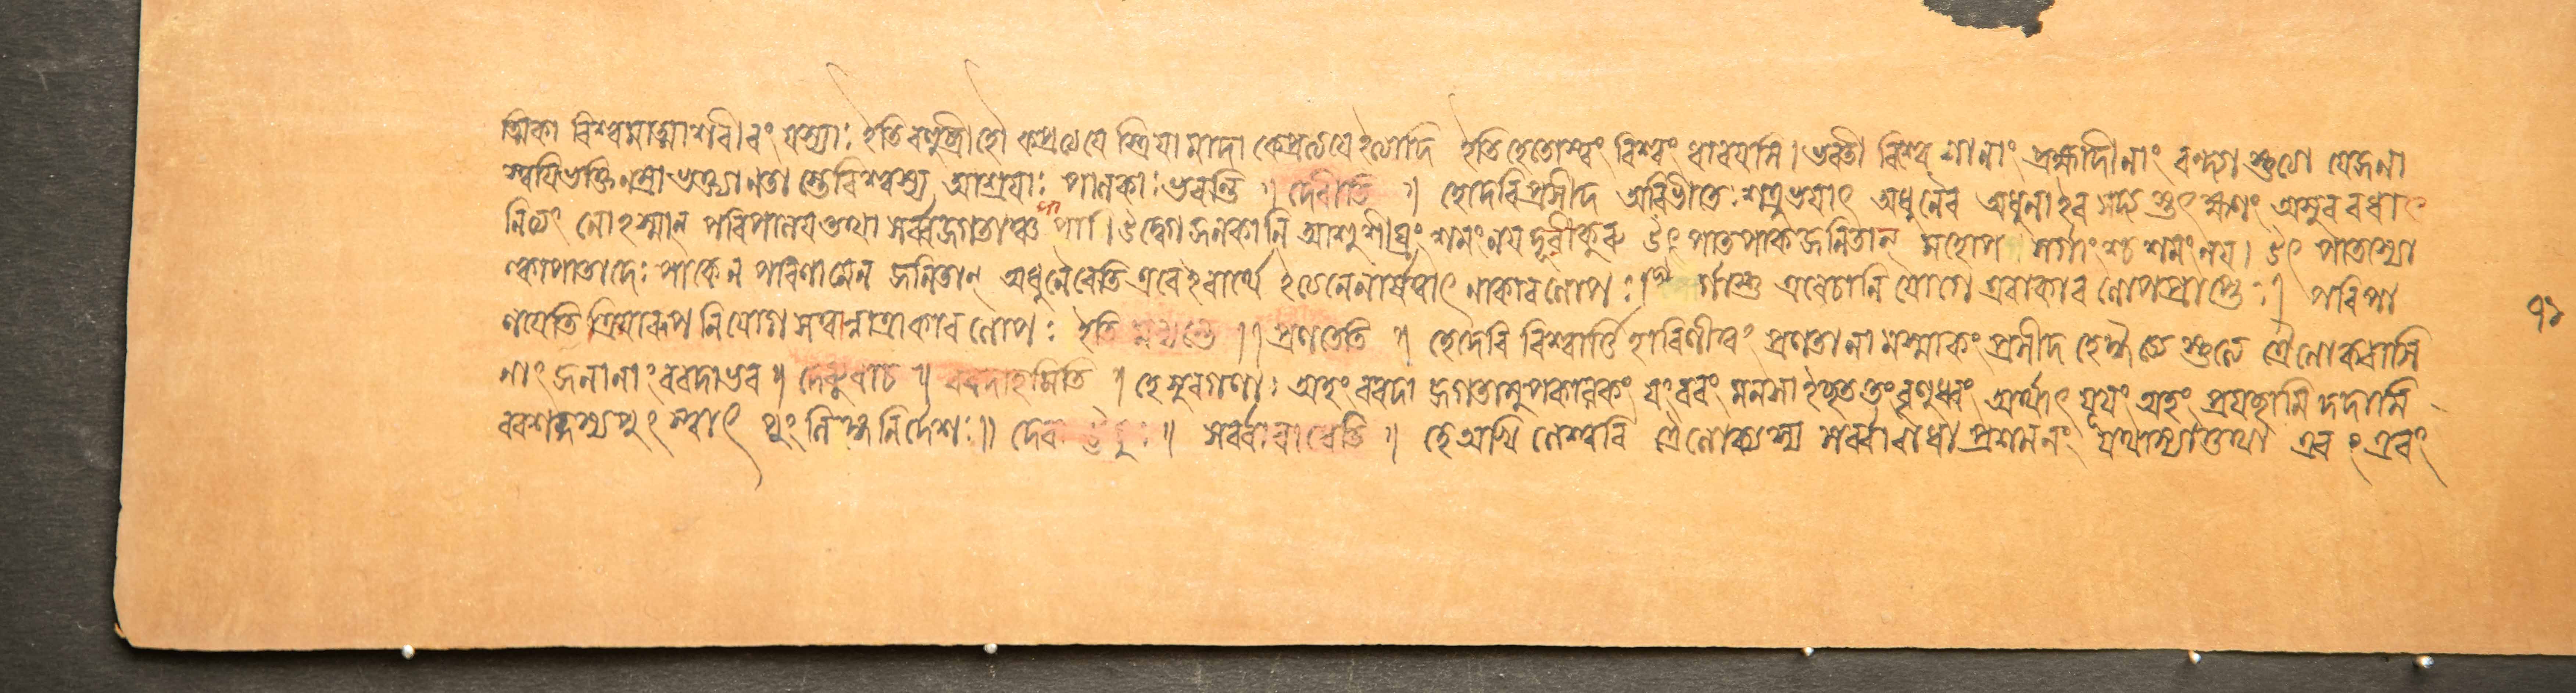 ত্মিকা বিশ্বমাত্মাশরীরং যস্যাঃ ইতি বহুব্রীহৌ কপ্রত্যয়ে স্ত্রিয়ামাদা কেপ্রত্যয়েঽত্যাদি ইতি হেতোস্ত্বং বিশ্বং ধারয়সি। ভবতী বিশ্বেশানাং ব্রহ্মাদীনাং বন্দ্যা স্তুত্যে যেজনা
স্ত্বয়িভক্তিনম্রাভক্ত্যানতা স্তেবিশ্বস্য আশ্রয়াঃ পালকাঃ ভবন্তি ॥ দেবীতি ॥ হেদেবিপ্রসীদ অরিভীতেঃ শত্রুভয়াৎ অধুনৈব অধুনাইব সদ্য স্তৎক্ষণং অসুরবধাৎ
নিত্যং নোঽস্মান্ পরিপালয়তথা সর্ব্বজগতাঞ্চ পাপা। উদ্বেগজনকানি আশুশীঘ্রং শমংনয়দূরীকুরু উৎপাতপাকজনিতান্ মহোপসর্গাংশ্চ শমংনয়। উৎপাতস্যো
ল্কাপাতাদেঃ পাকেন পরিণামেন জনিতান্ অধুনৈবেতি এবেঽবার্থে ঽত্যনেনার্ষত্বাৎ লাকারলোপঃ। র্গাস্তু এবেচানি যোগে এবাকার লোপপ্রাপ্তেঃ। পরিপা
লয়েতি ক্রিয়ারূপ নিযোগ সম্বান্নাত্রাকার লোপঃ ইতি মন্যন্তে ॥ প্রণতেতি ॥ হেদেবি বিশ্বার্ত্তিহারিণীত্বং প্রণতানামস্মাকং প্রসীদ হেঈড্যে স্তুত্যে ত্রৈলোক্যবাসি
নাং জনানাং বরদাভব ॥ দেব্যুবাচ ॥ বরদাহমিতি ॥ হে সুরগণাঃ অহং বরদা জগতামুপকারকং যংবরং মনসাইচ্ছত তংবৃণুধ্বং অর্থাৎ যূয়ং অহং প্রযচ্ছামি দদামি
বরশব্দস্যপুং স্ত্বাৎ পুংলিঙ্গনির্দেশঃ॥ দেবা ঊচুঃ ॥ সর্ব্বাবাধেতি ॥ হে অখিলেশ্বরি ত্রৈলোক্যস্য সর্ব্বাবাধাপ্রশমনং যথাস্যাত্তথা এবং এবং